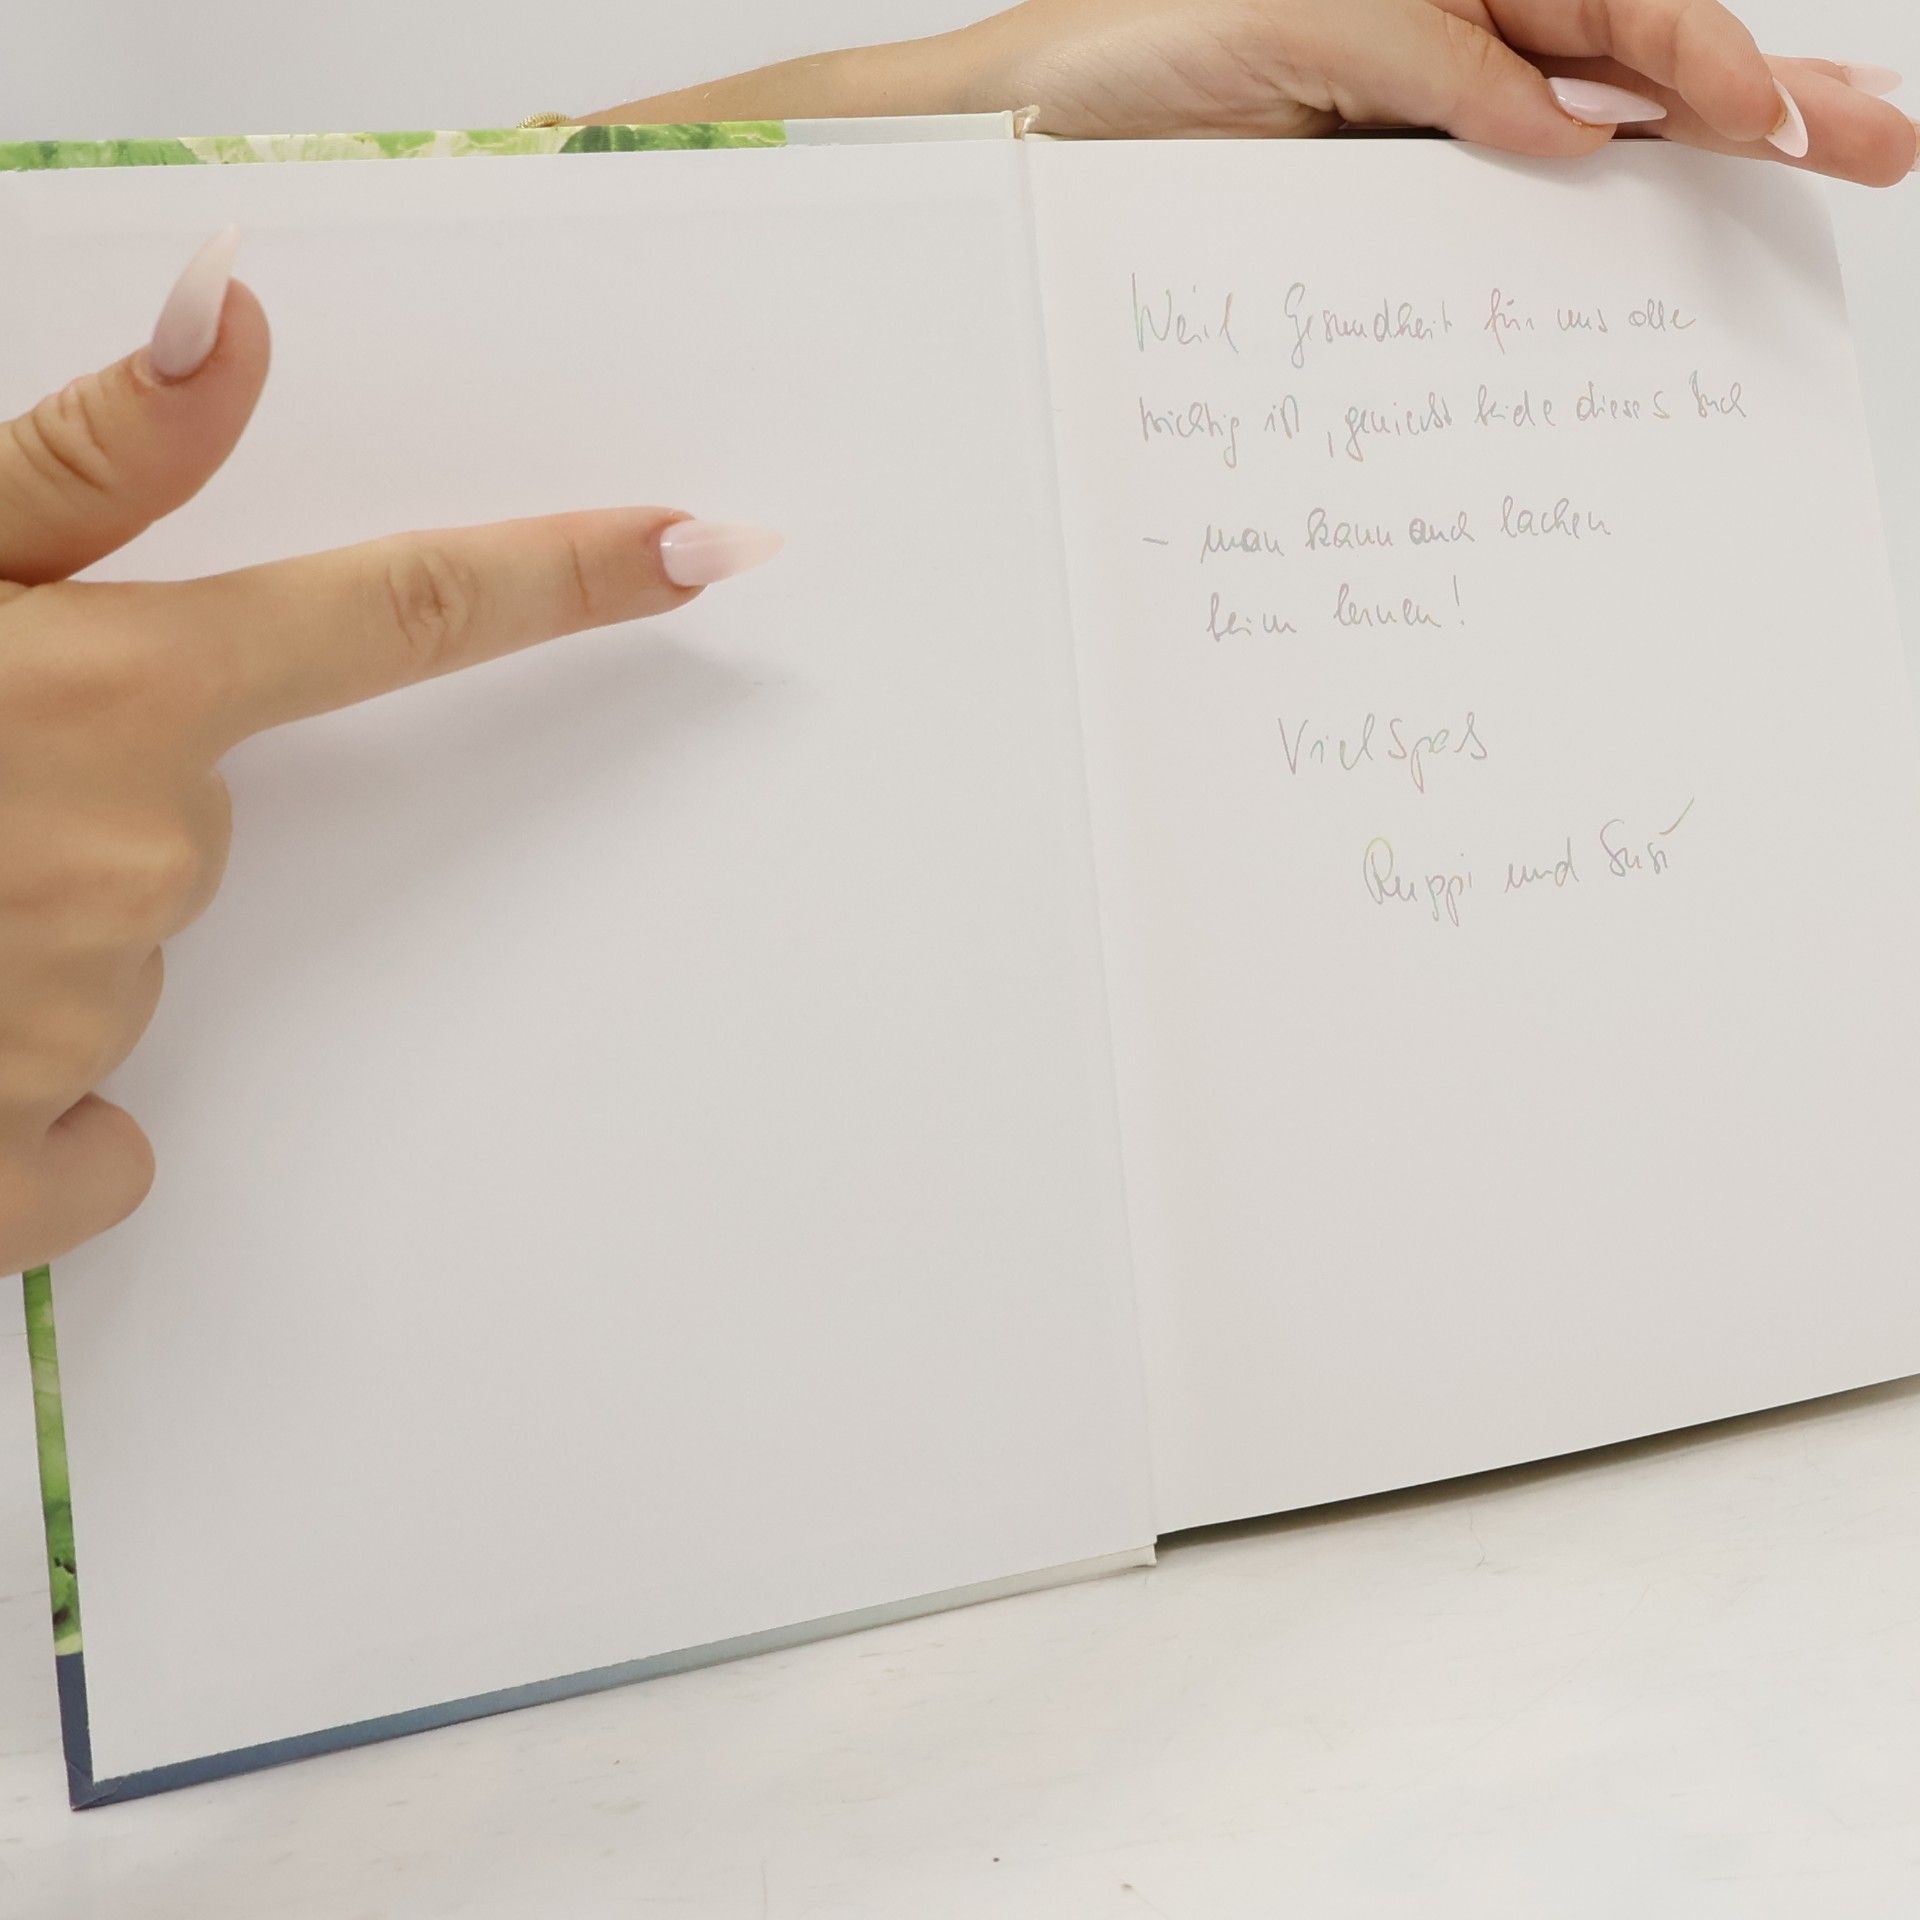 Weil Gesundheit für uns alle
wichtig ist, geniesst beide dieses Buch
- man kann auch lachen
beim lernen!
Viel Spass
Ruppi und Susi